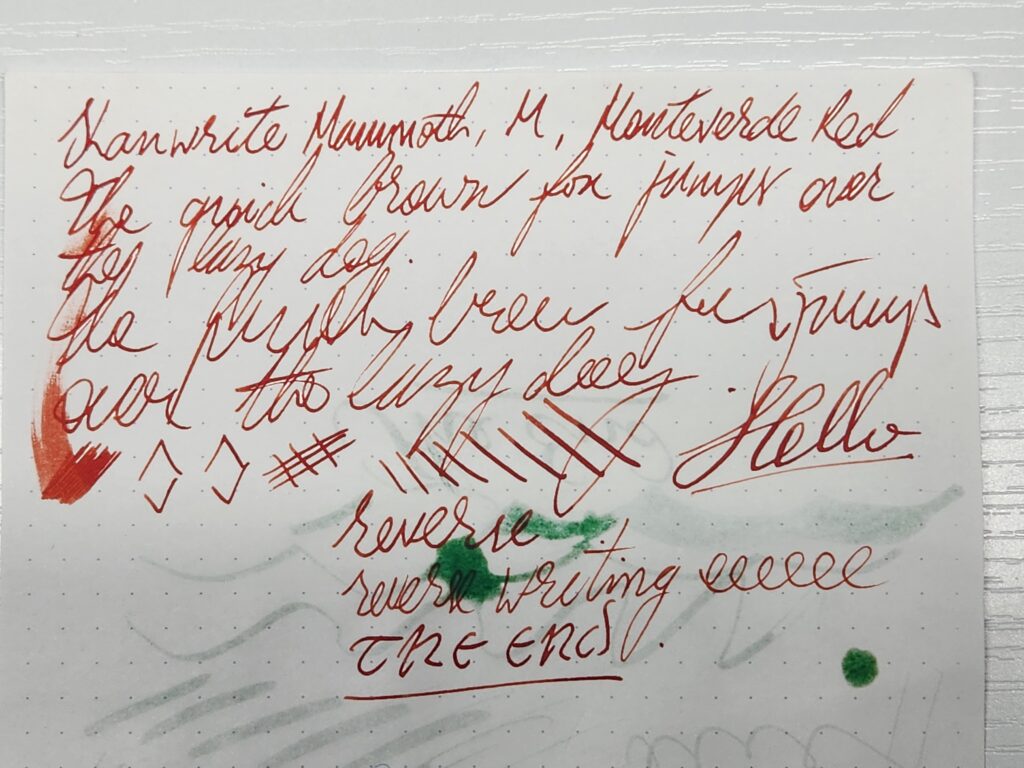 Kanwrite Mammoth, M, Monteverde Red
The quick brown fox jumps over
the lazy dog.
the brow fox jumps
over the lazy dog.
Hello
reverse
reverse writing eeeeee
THE END.